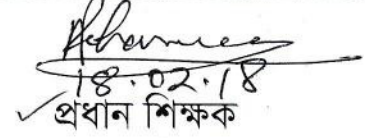 18.02.18
প্রধান শিক্ষক